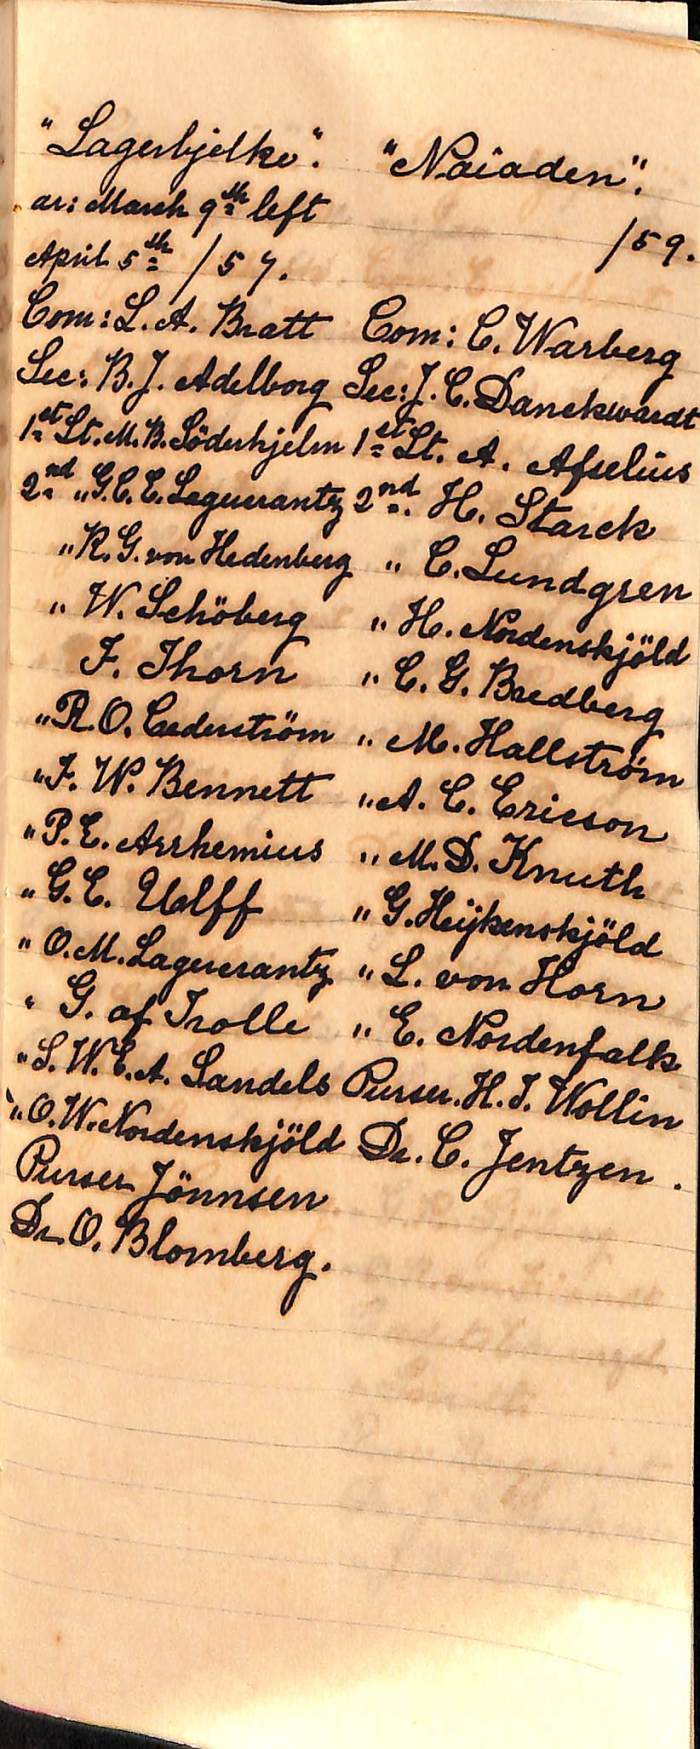 "Lagerbjelke". "Naiaden".
ar: March 9th left /59.
April 5th /57.
Com: L. A. Bratt Com: C. Warberg
Sec: B. J. Adelborg Sec: J. C. Danckwardt
1st Lt. M. B. Söderhjelm 1st Lt. A. Afzelius
2nd " G. C. E. Lagercrantz 2nd. H. Starck
" R. G. von Hedenberg " C. Lundgren
" W. Schöberg " H. Nordenskjöld
F. Thorn " C. G. Bredberg
" R. O. Cederström " M. Hallström
" F. W. Bennett " A. C. Ericson
" P. E. Arrhemius " M. D. Knuth
" G. E. Ulff " G. Heijkenskjöld
" O. M. Lagercrantz " L. von Horn
" G. af Trolle " E. Nordenfalk
" S. W. E. A. Sandels Purser. H. J. Wollin
" O. W. Nordenskjöld Dr. C. Jentzen.
Purser Jönnsen
Dr. O. Blomberg.